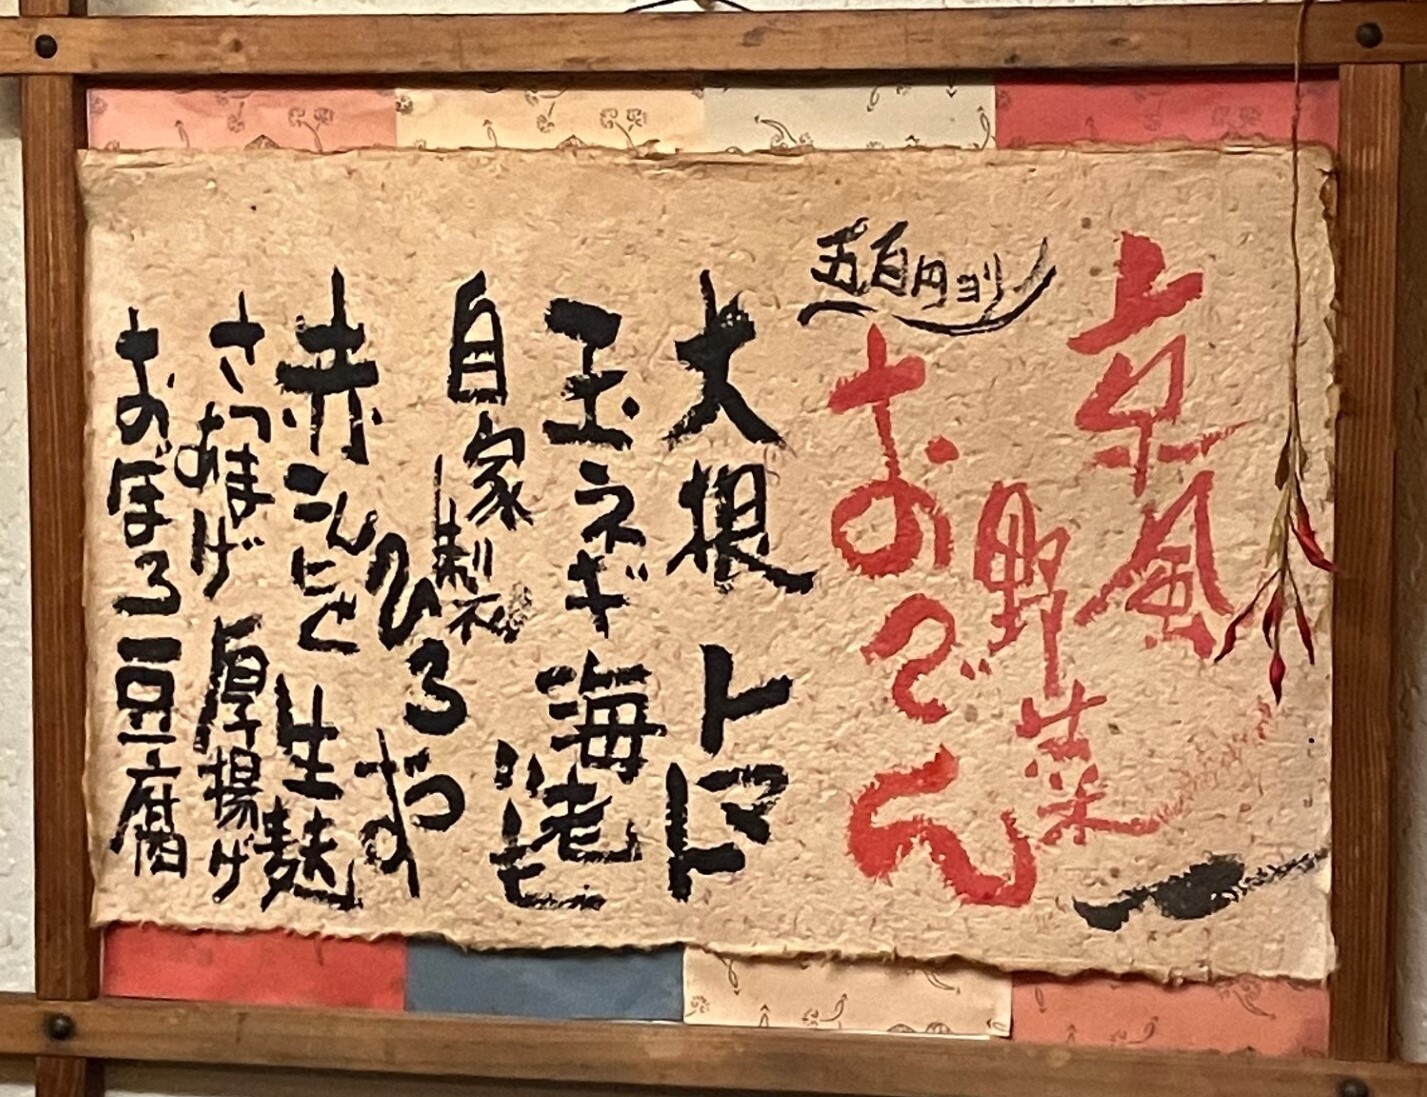 京風
野菜
おでん
五百円ヨリ
大根 トマト
玉ネギ 海老しんじょ
自家製 ひろうす
赤こんにゃく 生麩
さつまあげ 厚揚げ
おぼろ豆腐